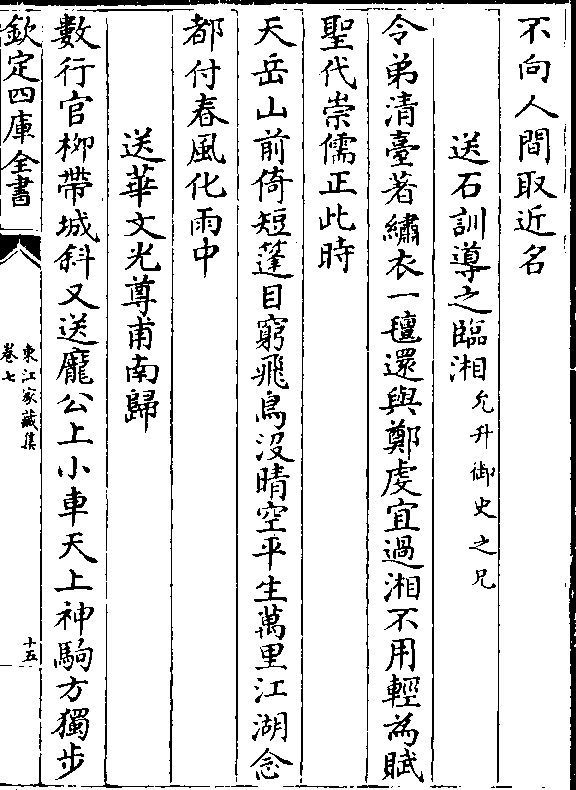 不向人間取近名
送石訓導之臨湘允升御史之兄
令弟清臺著繡衣一氊還與鄭虔宜過湘不用輕為賦
聖代崇儒正此時
天岳山前倚短蓬目窮飛鳥没晴空平生萬里江湖念
都付春風化雨中
送華文光尊甫南歸
數行官柳帶城斜又送龐公上小車天上神駒方獨步
欽定四庫全書
東江家藏集
卷七
十五